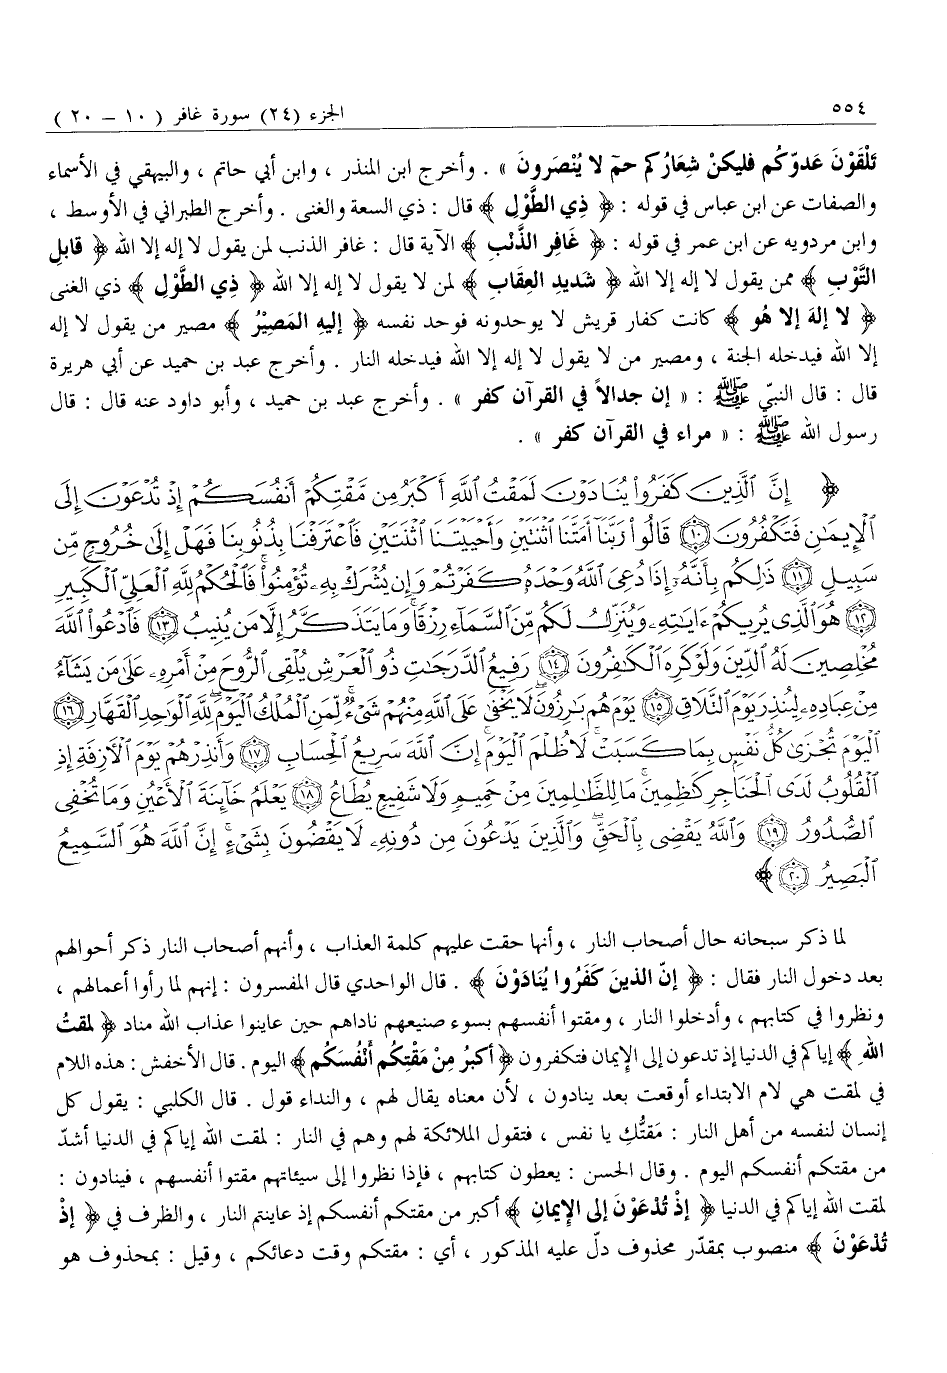 ٥٥٤
الجزء (٢٤) سورة غافر ( ١٠ – ٢٠ )
تَلْقَوْنَ عَدوّكُم فليكنْ شِعَارُكم حمٓ لا يُنْصَرونَ » . وأخرج ابن المنذر ، وابن أبي حاتم ، والبيهقي في الأسماء
والصفات عن ابن عباس في قوله : ﴿ ذِي الطَّوْلِ ﴾ قال : ذي السعة والغنى . وأخرج الطبراني في الأوسط ،
وابن مردويه عن ابن عمر في قوله : ﴿ غَافِرِ الذَّنْبِ ﴾ الآية قال : غافر الذنب لمن يقول لا إله إلا الله ﴿ قابلِ
التَّوْبِ ﴾ ممن يقول لا إله إلا الله ﴿ شَديدِ العِقَابِ ﴾ لمن لا يقول لا إله إلا الله ﴿ ذِي الطَّوْلِ ﴾ ذي الغنى
﴿ لا إلهَ إلا هُو ﴾ كانت كفار قريش لا يوحدونه فوحد نفسه ﴿ إليهِ المَصِيْرُ ﴾ مصير من يقول لا إله
إلا الله فيدخله الجنة ، ومصير من لا يقول لا إله إلا الله فيدخله النار . وأخرج عبد بن حميد عن أبي هريرة
قال : قال النبيّ ﷺ : « إن جدالاً في القرآن كفر » . وأخرج عبد بن حميد ، وأبو داود عنه قال : قال
رسول الله ﷺ : « مراء في القرآن كفر » .
﴿ إِنَّ ٱلَّذِينَ كَفَرُوا۟ يُنَادَوْنَ لَمَقْتُ ٱللَّهِ أَكْبَرُ مِن مَّقْتِكُمْ أَنفُسَكُمْ إِذْ تُدْعَوْنَ إِلَى
ٱلْإِيمَٰنِ فَتَكْفُرُونَ ١٠ قَالُوا۟ رَبَّنَآ أَمَتَّنَا ٱثْنَتَيْنِ وَأَحْيَيْتَنَا ٱثْنَتَيْنِ فَٱعْتَرَفْنَا بِذُنُوبِنَا فَهَلْ إِلَىٰ خُرُوجٍ مِّن
سَبِيلٍ ١١ ذَٰلِكُم بِأَنَّهُۥٓ إِذَا دُعِىَ ٱللَّهُ وَحْدَهُۥ كَفَرْتُمْ وَإِن يُشْرَكْ بِهِۦ تُؤْمِنُوا۟ فَٱلْحُكْمُ لِلَّهِ ٱلْعَلِىِّ ٱلْكَبِيرِ
١٢ هُوَ ٱلَّذِى يُرِيكُمْ ءَايَٰتِهِۦ وَيُنَزِّلُ لَكُم مِّنَ ٱلسَّمَآءِ رِزْقًا وَمَا يَتَذَكَّرُ إِلَّا مَن يُنِيبُ ١٣ فَٱدْعُوا۟ ٱللَّهَ
مُخْلِصِينَ لَهُ ٱلدِّينَ وَلَوْ كَرِهَ ٱلْكَٰفِرُونَ ١٤ رَفِيعُ ٱلدَّرَجَٰتِ ذُو ٱلْعَرْشِ يُلْقِى ٱلرُّوحَ مِنْ أَمْرِهِۦ عَلَىٰ مَن يَشَآءُ
مِنْ عِبَادِهِۦ لِيُنذِرَ يَوْمَ ٱلتَّلَاقِ ١٥ يَوْمَ هُم بَٰرِزُونَ لَا يَخْفَىٰ عَلَى ٱللَّهِ مِنْهُمْ شَىْءٌ لِّمَنِ ٱلْمُلْكُ ٱلْيَوْمَ لِلَّهِ ٱلْوَٰحِدِ ٱلْقَهَّارِ ١٦
ٱلْيَوْمَ تُجْزَىٰ كُلُّ نَفْسٍۭ بِمَا كَسَبَتْ لَا ظُلْمَ ٱلْيَوْمَ إِنَّ ٱللَّهَ سَرِيعُ ٱلْحِسَابِ ١٧ وَأَنذِرْهُمْ يَوْمَ ٱلْءَازِفَةِ إِذِ
ٱلْقُلُوبُ لَدَى ٱلْحَنَاجِرِ كَٰظِمِينَ مَا لِلظَّٰلِمِينَ مِنْ حَمِيمٍ وَلَا شَفِيعٍ يُطَاعُ ١٨ يَعْلَمُ خَآئِنَةَ ٱلْأَعْيُنِ وَمَا تُخْفِى
ٱلصُّدُورُ ١٩ وَٱللَّهُ يَقْضِى بِٱلْحَقِّ وَٱلَّذِينَ يَدْعُونَ مِن دُونِهِۦ لَا يَقْضُونَ بِشَىْءٍ إِنَّ ٱللَّهَ هُوَ ٱلسَّمِيعُ
ٱلْبَصِيرُ ٢٠ ﴾
لما ذكر سبحانه حال أصحاب النار ، وأنها حقت عليهم كلمة العذاب ، وأنهم أصحاب النار ذكر أحوالهم
بعد دخول النار فقال : ﴿ إنّ الذينَ كَفَرُوا يُنَادَوْنَ ﴾ . قال الواحدي قال المفسرون : إنهم لما رأوا أعمالهم ،
ونظروا في كتابهم ، وأدخلوا النار ، ومقتوا أنفسهم بسوء صنيعهم ناداهم حين عاينوا عذاب الله مناد ﴿ لمقتُ
اللهِ ﴾ إياكم في الدنيا إذ تدعون إلى الإيمان فتكفرون ﴿ أكبرُ مِنْ مَقْتِكُم أَنْفُسَكُم ﴾ اليوم . قال الأخفش : هذه اللام
في لمقت هي لام الابتداء أوقعت بعد ينادون ، لأن معناه يقال لهم ، والنداء قول . قال الكلبي : يقول كل
إنسان لنفسه من أهل النار : مَقتُّكِ يا نفس ، فتقول الملائكة لهم وهم في النار : لمقت الله إياكم في الدنيا أشدّ
من مقتكم أنفسكم اليوم . وقال الحسن : يعطون كتابهم ، فإذا نظروا إلى سيئاتهم مقتوا أنفسهم ، فينادون :
لمقت الله إياكم في الدنيا ﴿ إذْ تُدْعَوْنَ إلى الإيمانِ ﴾ أكبر من مقتكم أنفسكم إذ عاينتم النار ، والظرف في ﴿ إذْ
تُدْعَوْنَ ﴾ منصوب بمقدّر محذوف دلّ عليه المذكور ، أي : مقتكم وقت دعائكم ، وقيل : بمحذوف هو